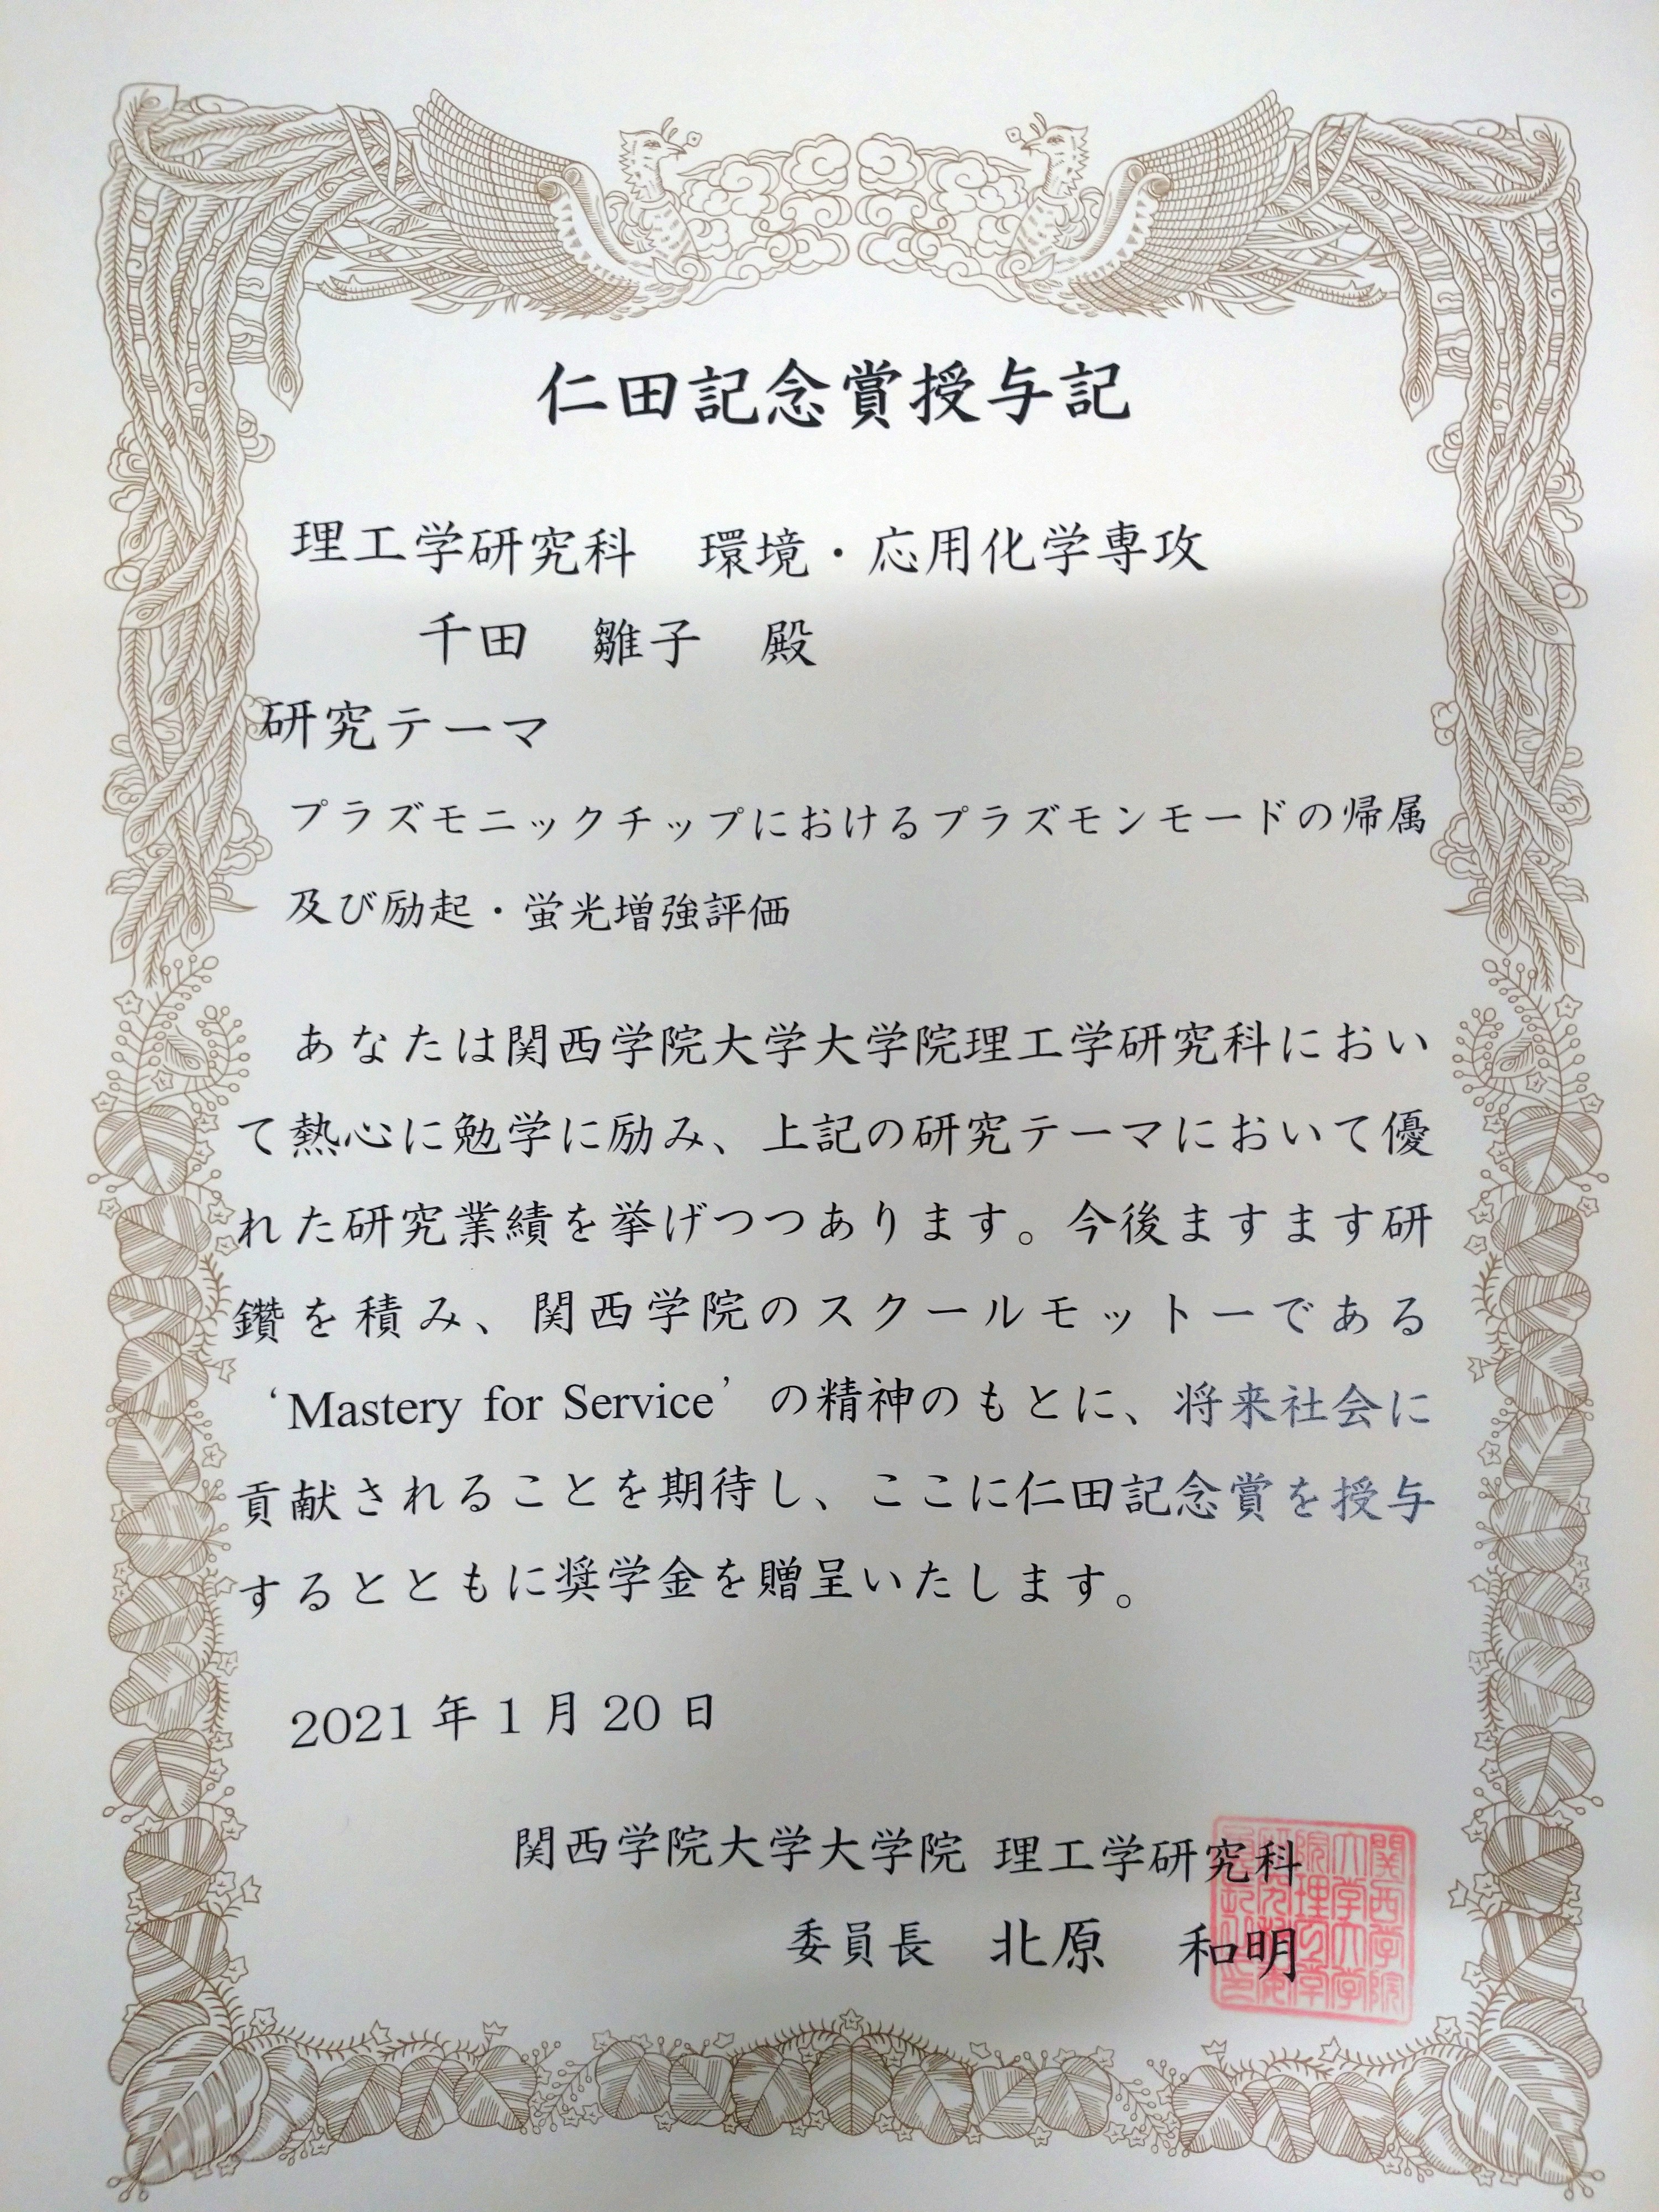 仁田記念賞授与記
理工学研究科　環境・応用化学専攻
千田　雛子　殿
研究テーマ
プラズモニックチップにおけるプラズモンモードの帰属
及び励起・蛍光増強評価
あなたは関西学院大学大学院理工学研究科におい
て熱心に勉学に励み、上記の研究テーマにおいて優
れた研究業績を挙げつつあります。今後ますます研
鑽を積み、関西学院のスクールモットーである
‘Mastery for Service’ の精神のもとに、将来社会に
貢献されることを期待し、ここに仁田記念賞を授与
するとともに奨学金を贈呈いたします。
2021 年 1 月 20 日
関西学院大学大学院 理工学研究科
委員長　北原　和明